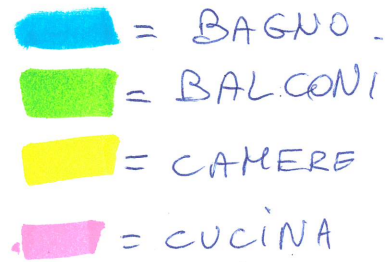 = BAGNO.
= BALCONI
= CAMERE
= CUCINA